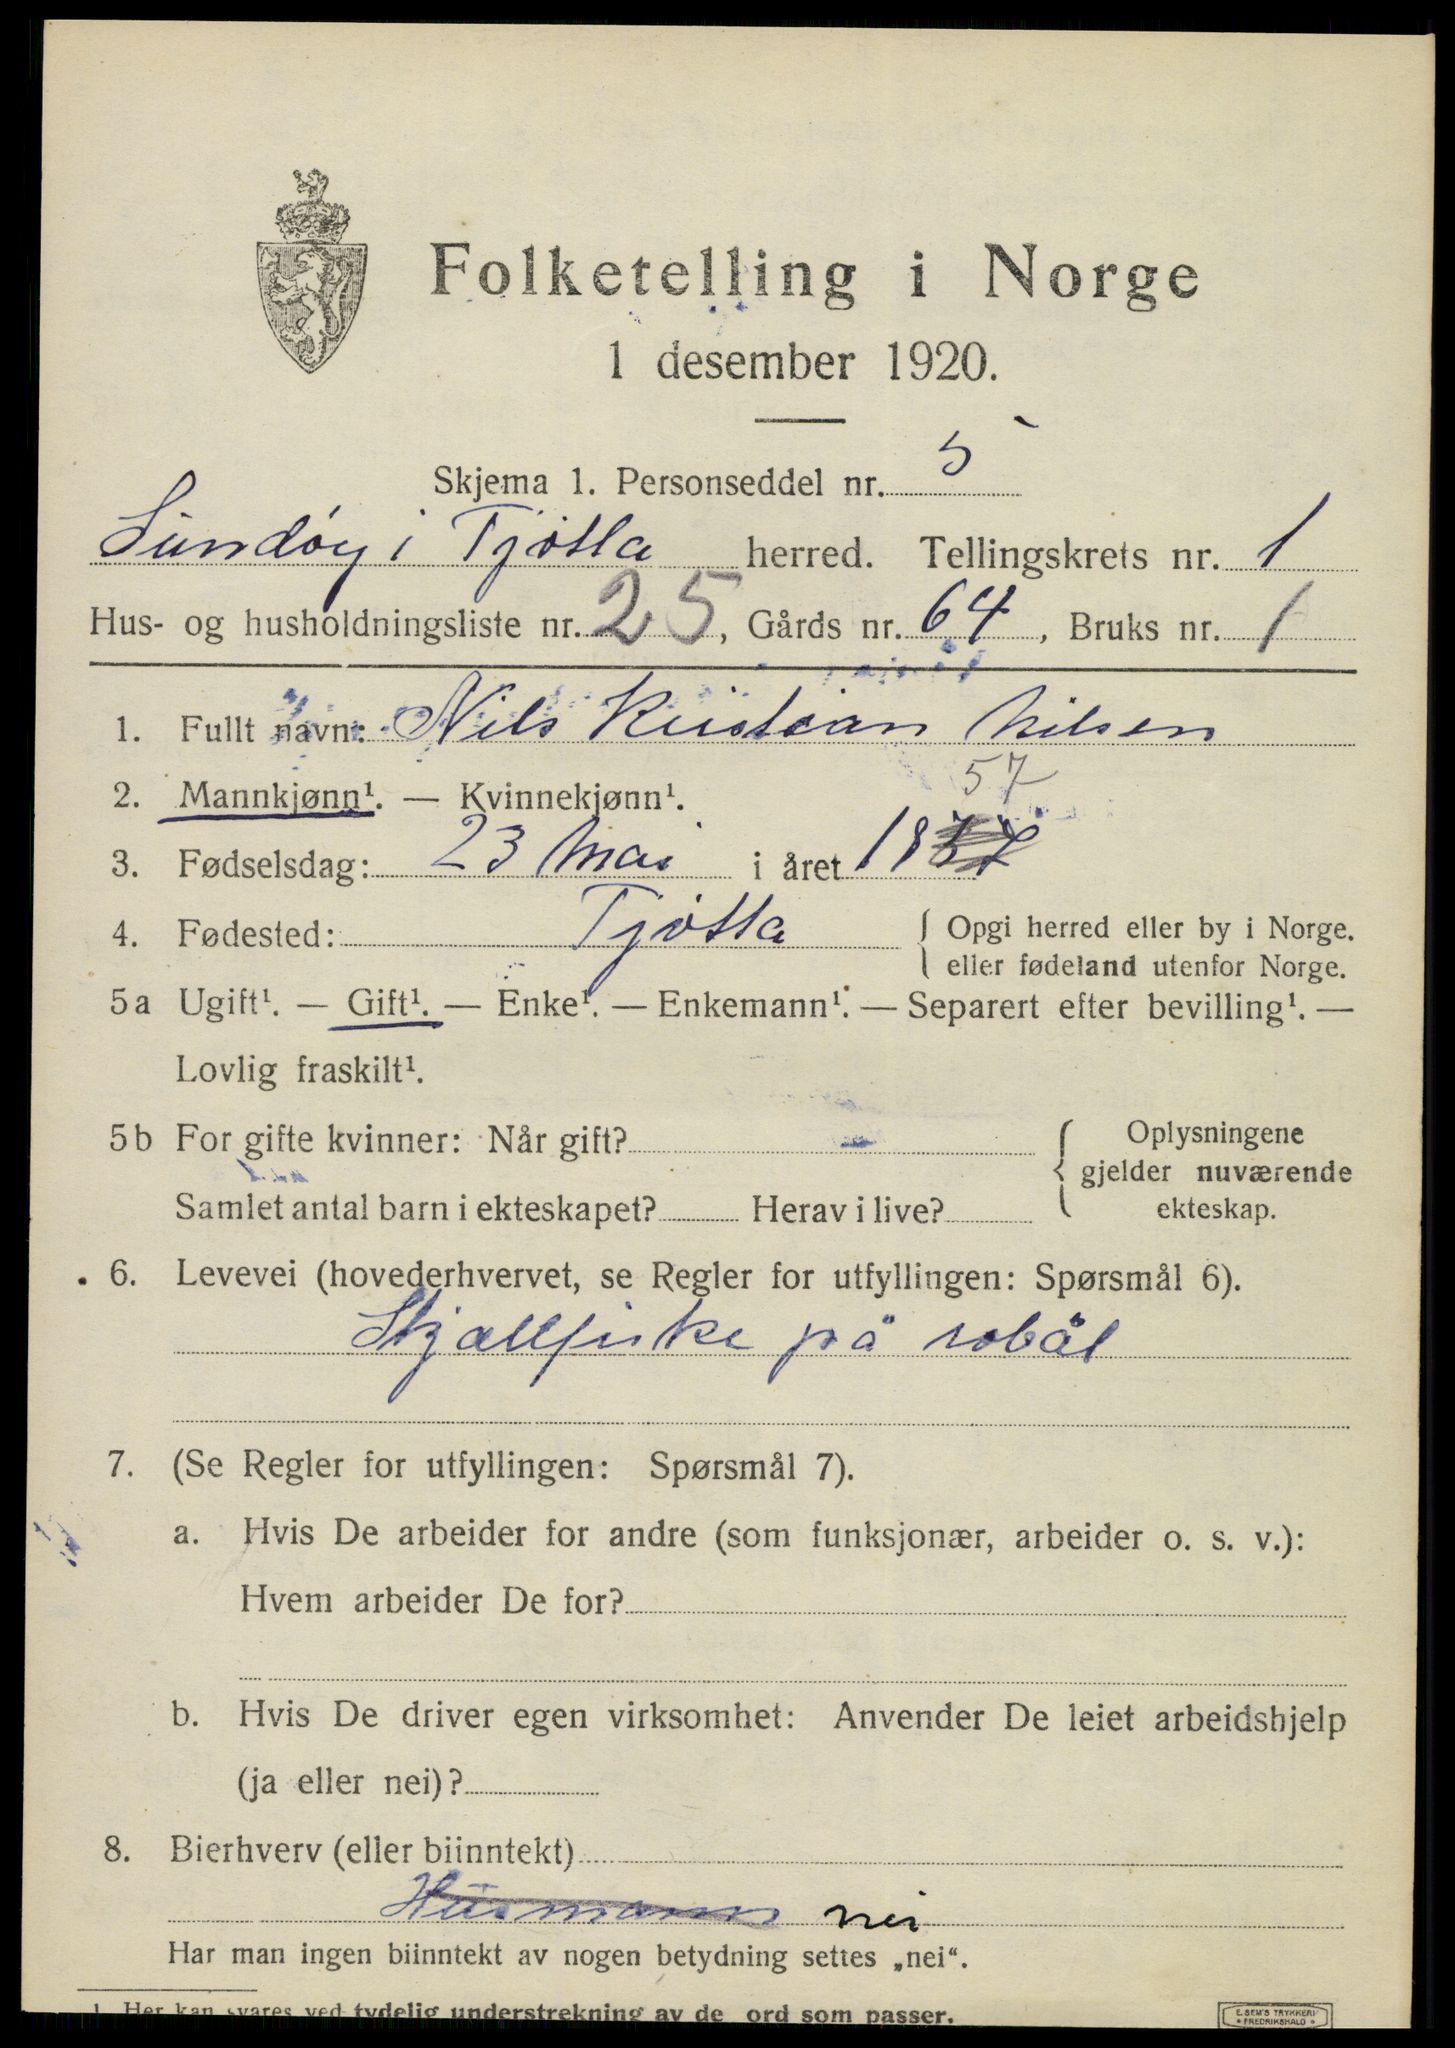 Folketelling i Norge
1 desember 1920.
Skjema 1. Personseddel nr. 5
Sundøy i Tjøtta herred. Tellingskrets nr. 1
Hus- og husholdningsliste nr. 25, Gårds nr. 64, Bruks nr. 1
1. Fullt navn: Nils Kristian Nilsen
57
2. Mannkjønn¹. — Kvinnekjønn¹.
3. Fødselsdag: 23 Mai i året 18
4. Fødested: Tjøtta { Opgi herred eller by i Norge.
eller fødeland utenfor Norge.
5a Ugift¹. — Gift¹. — Enke¹. — Enkemann¹. — Separert efter bevilling¹. —
Lovlig fraskilt¹.
5b For gifte kvinner: Når gift? { Oplysningene
gjelder nuværende
Samlet antal barn i ekteskapet? Herav i live? ekteskap.
6. Levevei (hovederhvervet, se Regler for utfyllingen: Spørsmål 6).
Skjællfiske på robåt
7. (Se Regler for utfyllingen: Spørsmål 7).
a. Hvis De arbeider for andre (som funksjonær, arbeider o. s. v.):
Hvem arbeider De for?
b. Hvis De driver egen virksomhet: Anvender De leiet arbeidshjelp
(ja eller nei)?
8. Bierhverv (eller biinntekt)
Husmann nei
Har man ingen biinntekt av nogen betydning settes „nei“.
1. Her kan svares ved tydelig understrekning av de ord som passer.
E. SEM'S TRYKKERI
* FREDRIKSHALD *